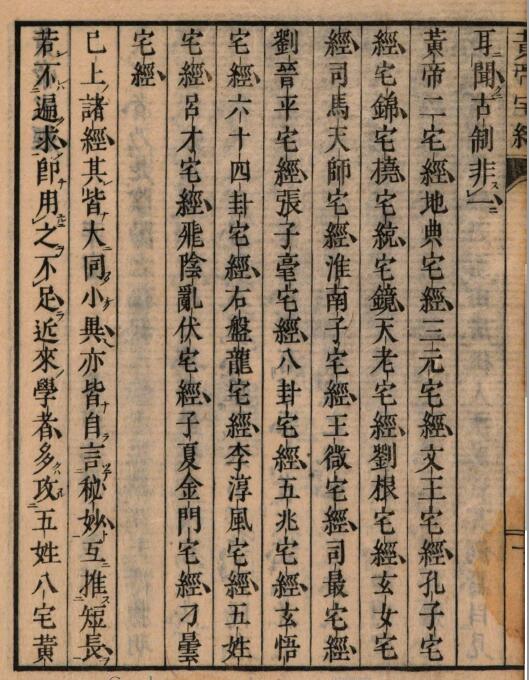 黃帝宅經
耳聞古制非一
黃帝二宅經地典宅經三元宅經文王宅經孔子宅
經宅錦宅橈宅統宅鏡天老宅經劉根宅經玄女宅
經司馬天師宅經淮南子宅經王微宅經司最宅經
劉晉平宅經張子毫宅經八卦宅經五兆宅經玄悟
宅經六十四卦宅經右盤龍宅經李淳風宅經五姓
宅經呂才宅經飛陰亂伏宅經子夏金門宅經刁曇
宅經
已上諸經其皆大同小異亦皆自言秘妙互推短長
若不遍求即用之不足近來學者多攻五姓八宅黃